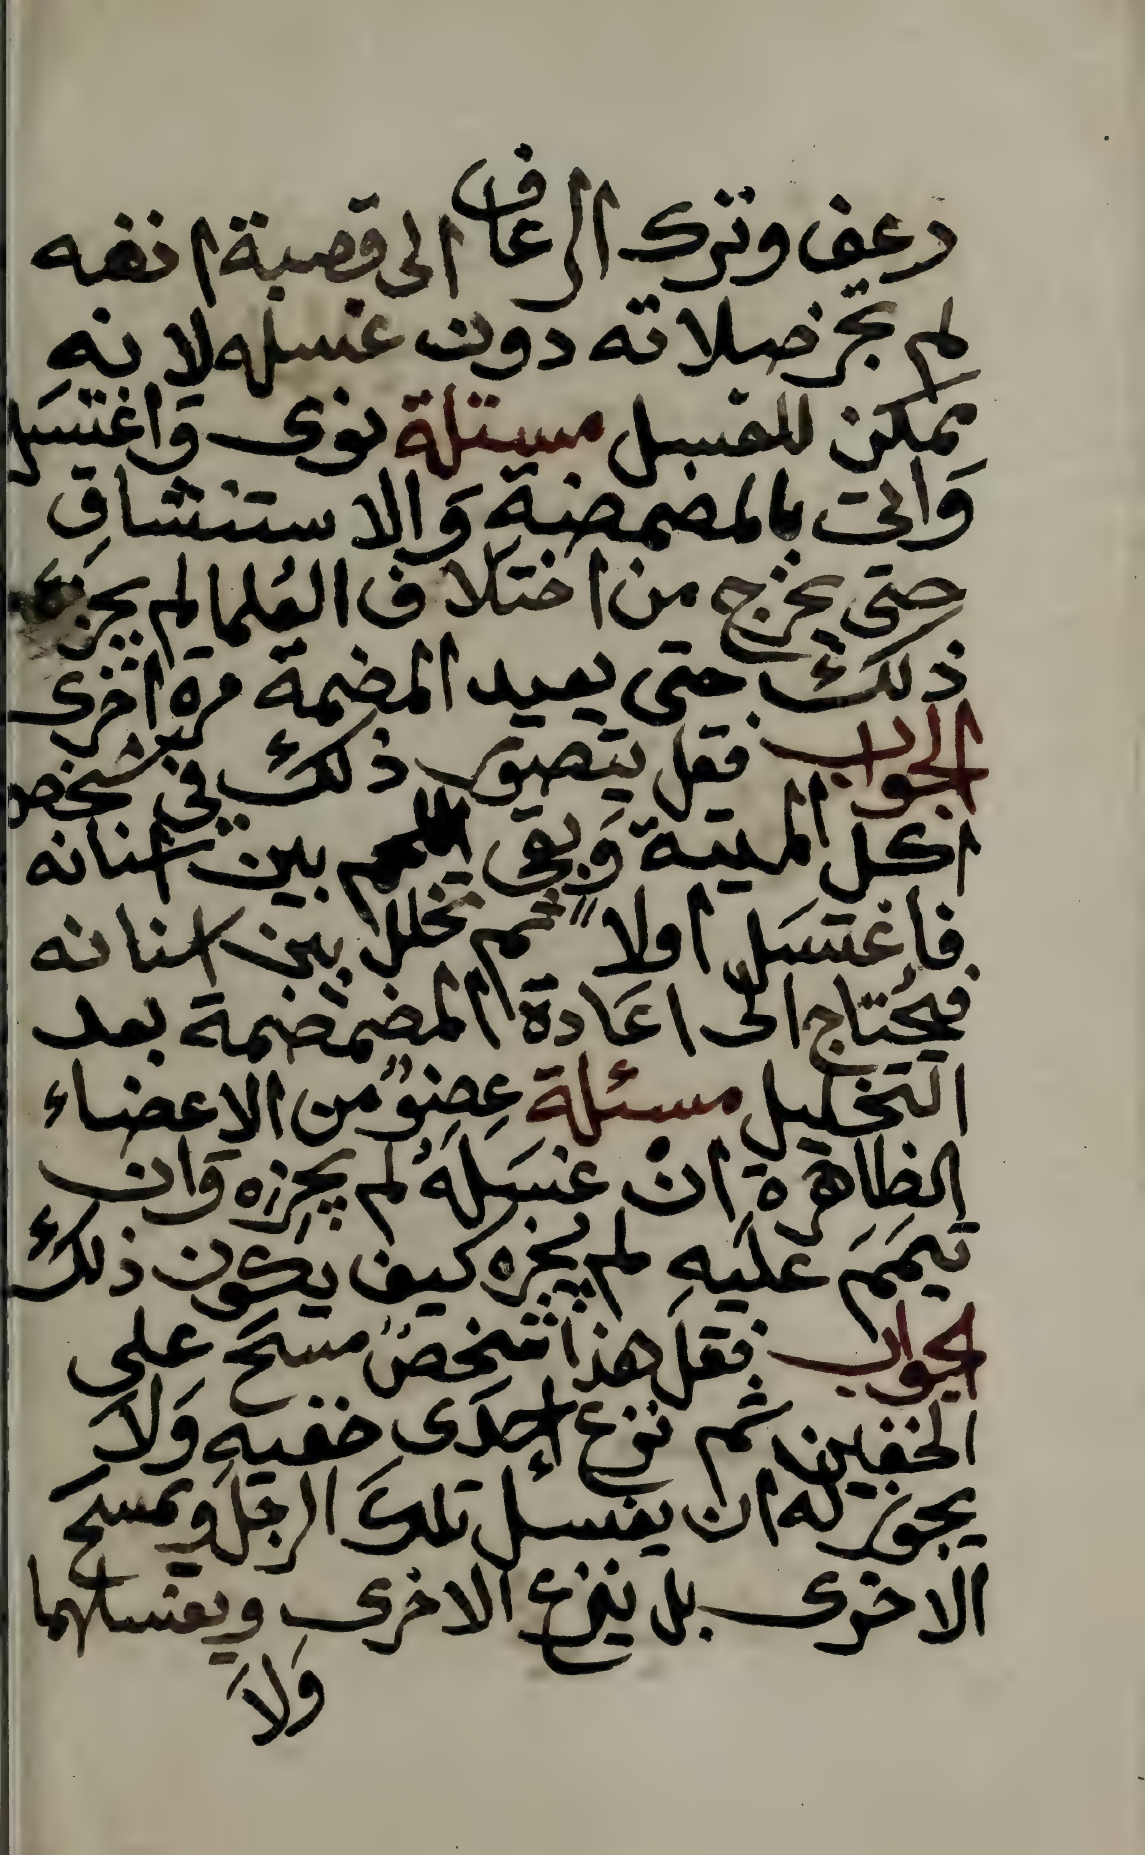 رعف وترك الرعاف الى قصبة انفه
لم تجز صلاته دون غسله لا نه
ممكن للغسل مسئلة نوى وَاغتسَل
وَاتى بالمضمضةِ وَالاستنشاقِ
حتى يخرج من اختلاف العُلما لم يجزه
ذلك حتى يعيد المضمة مرة اخرى
الجواب فقل يتصور ذلك في شخص
اكل الميتة وَبقى اللحم بين اسنانه
فاغتسَل اولاً ثم تخلل بين اسنانه
فيحُتاج الى اعَادة المضمضمة بعد
التخليل مسئلة عِضوٌ من الاعضاء
الظاهرة انْ غسَلهُ لم يجزه وَان
تيمَمَ عليه لم يجزه كيف يكون ذلك
الجواب فقل هذا شخصٌ مسَحَ على
الخفين ثم نزع إحدَى خفيهِ وَلاَ
يجوز له ان يغسل تلك الرجل ويمسح
الاخرى بل ينزع الاخرى ويغسلهما
وَلاَ